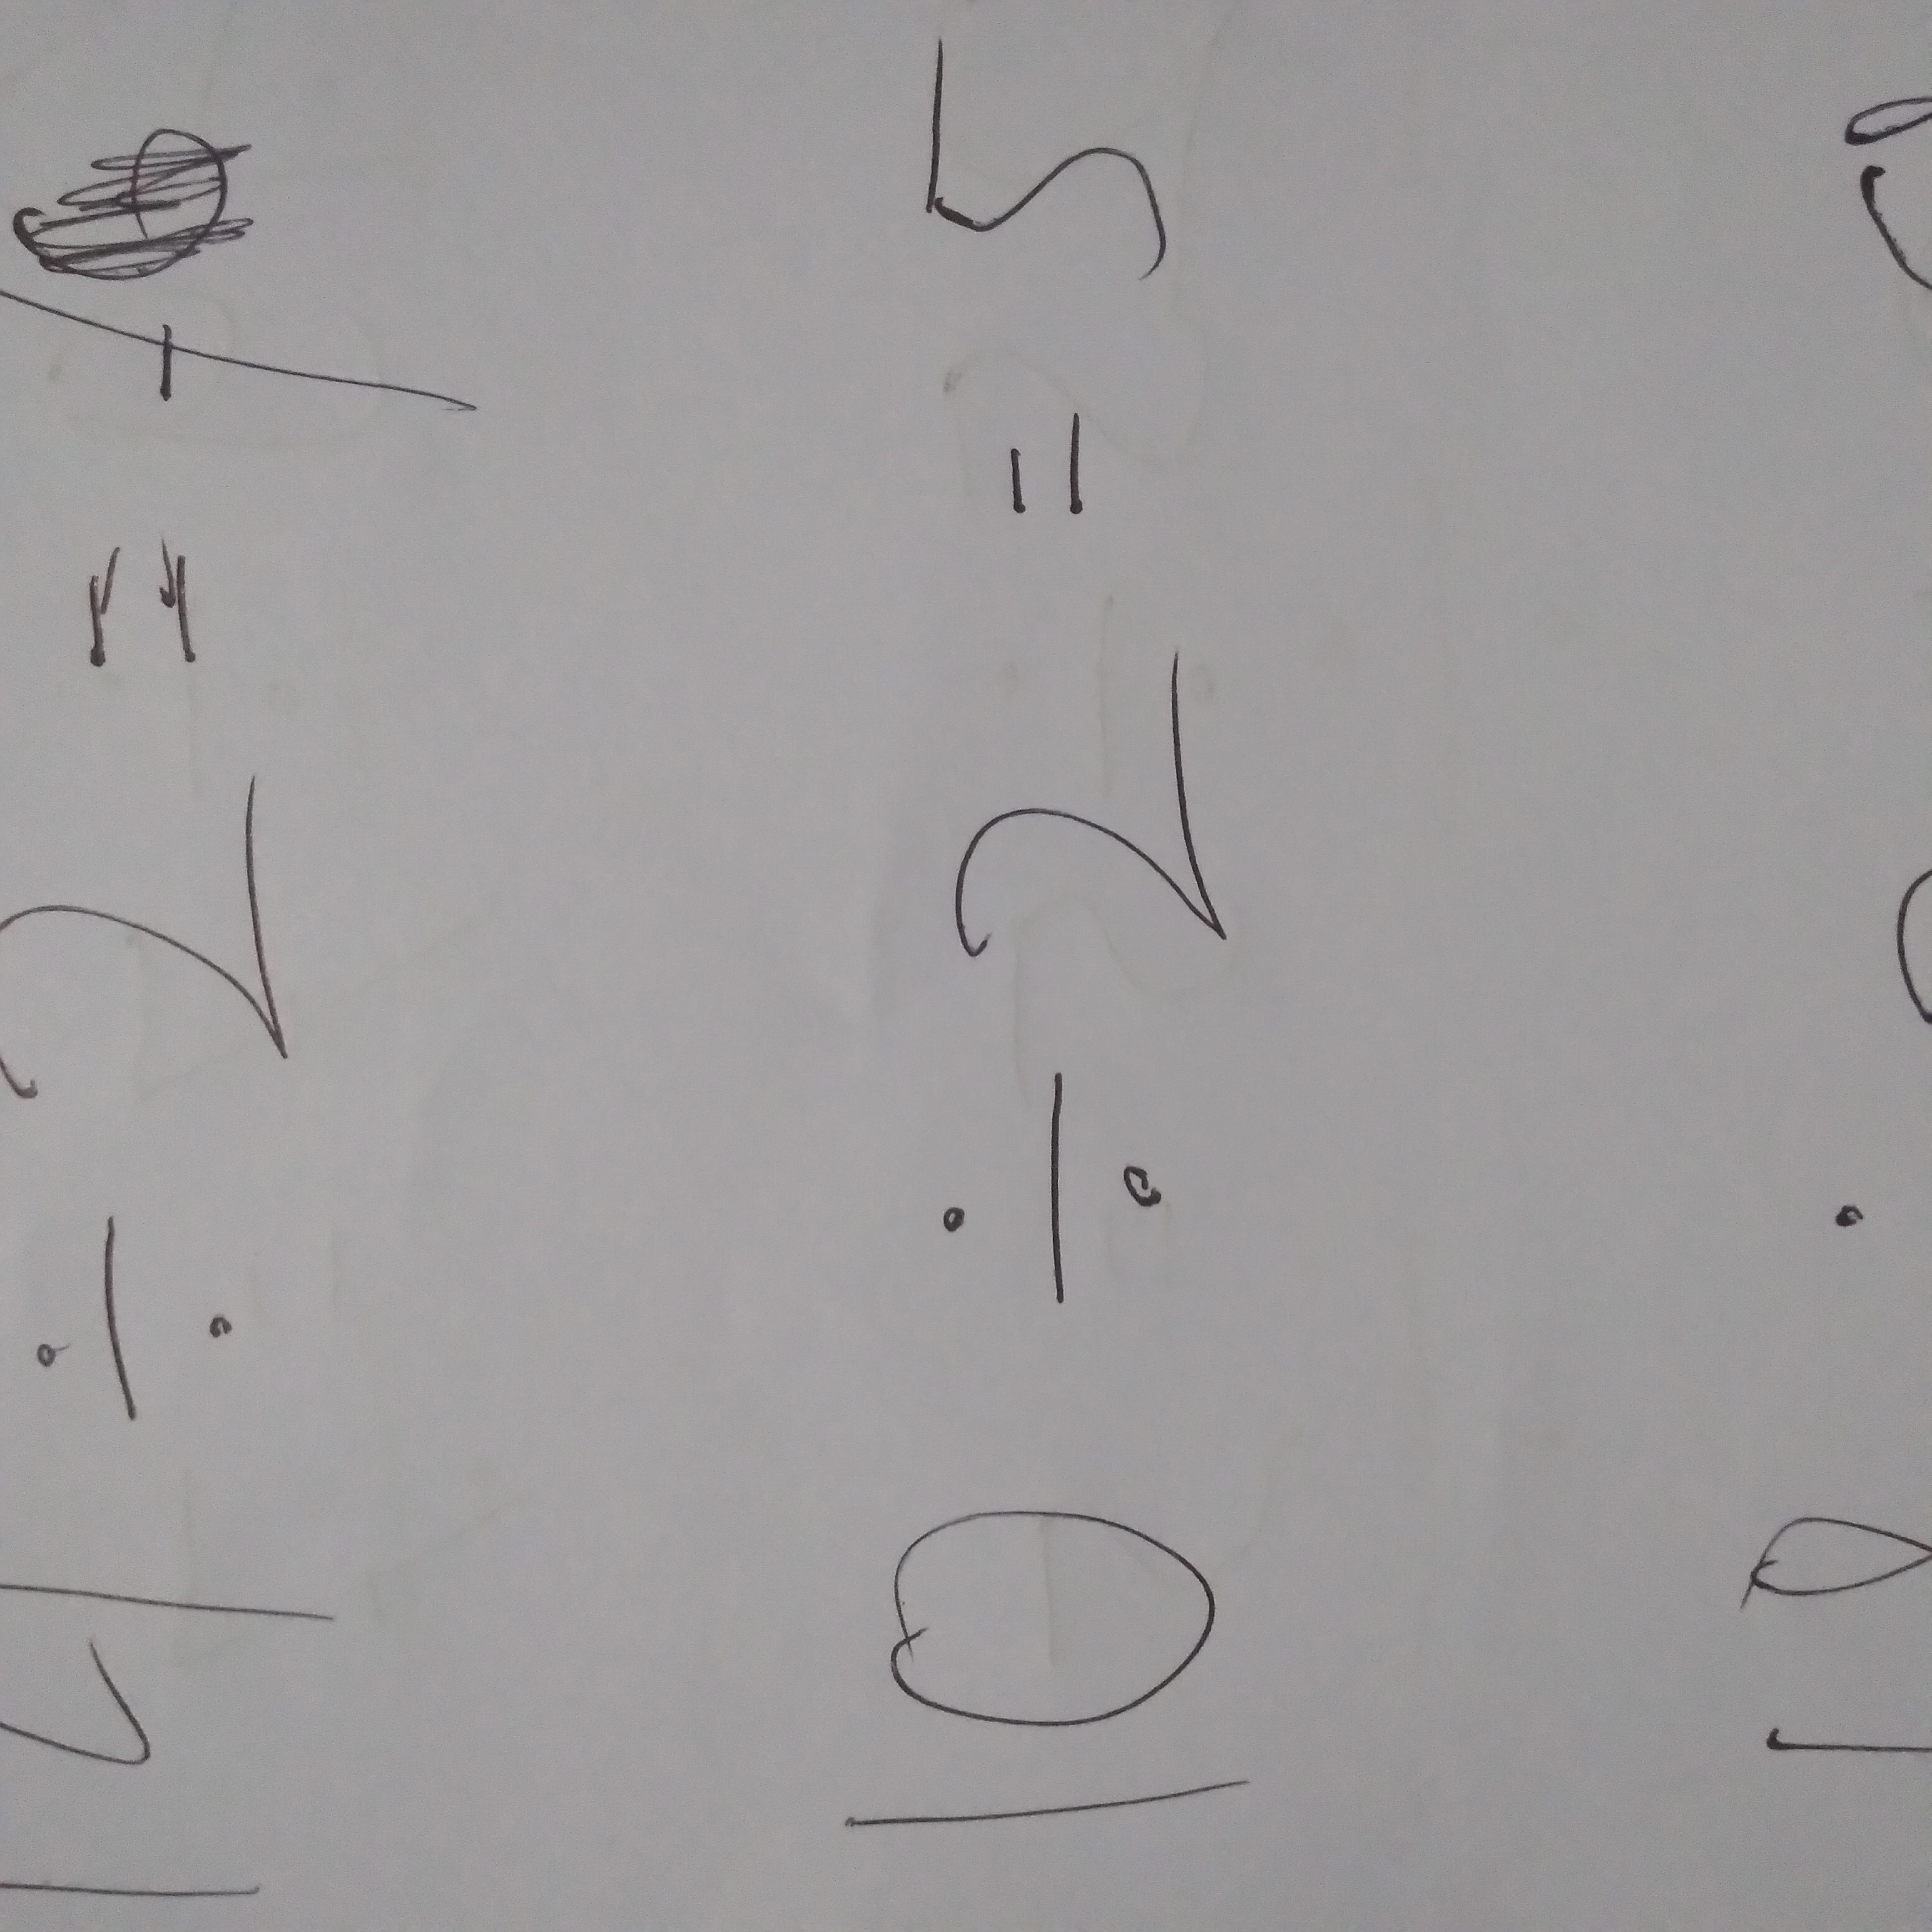 14 ÷ 2 = 7
10 ÷ 2 = 5
18